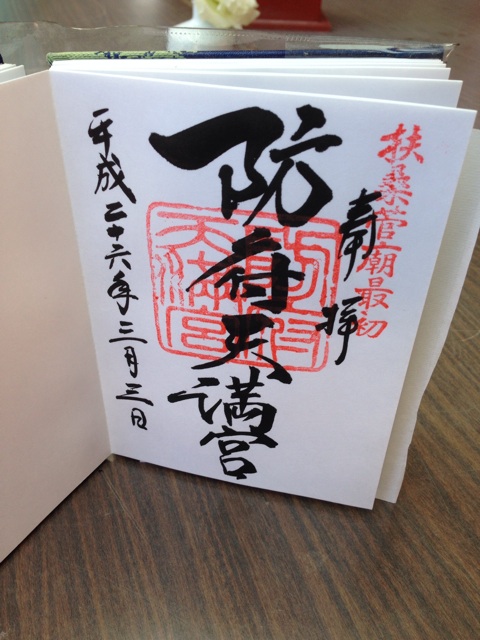 扶桑菅廟最初
奉拝
防府天満宮
防府天満宮
平成二十六年三月三日